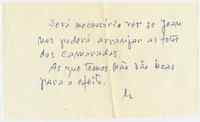 Será necessário ver se Jean
nos poderá arranjar as fotos
dos camaradas.
As que temos não são boas
para o efeito.